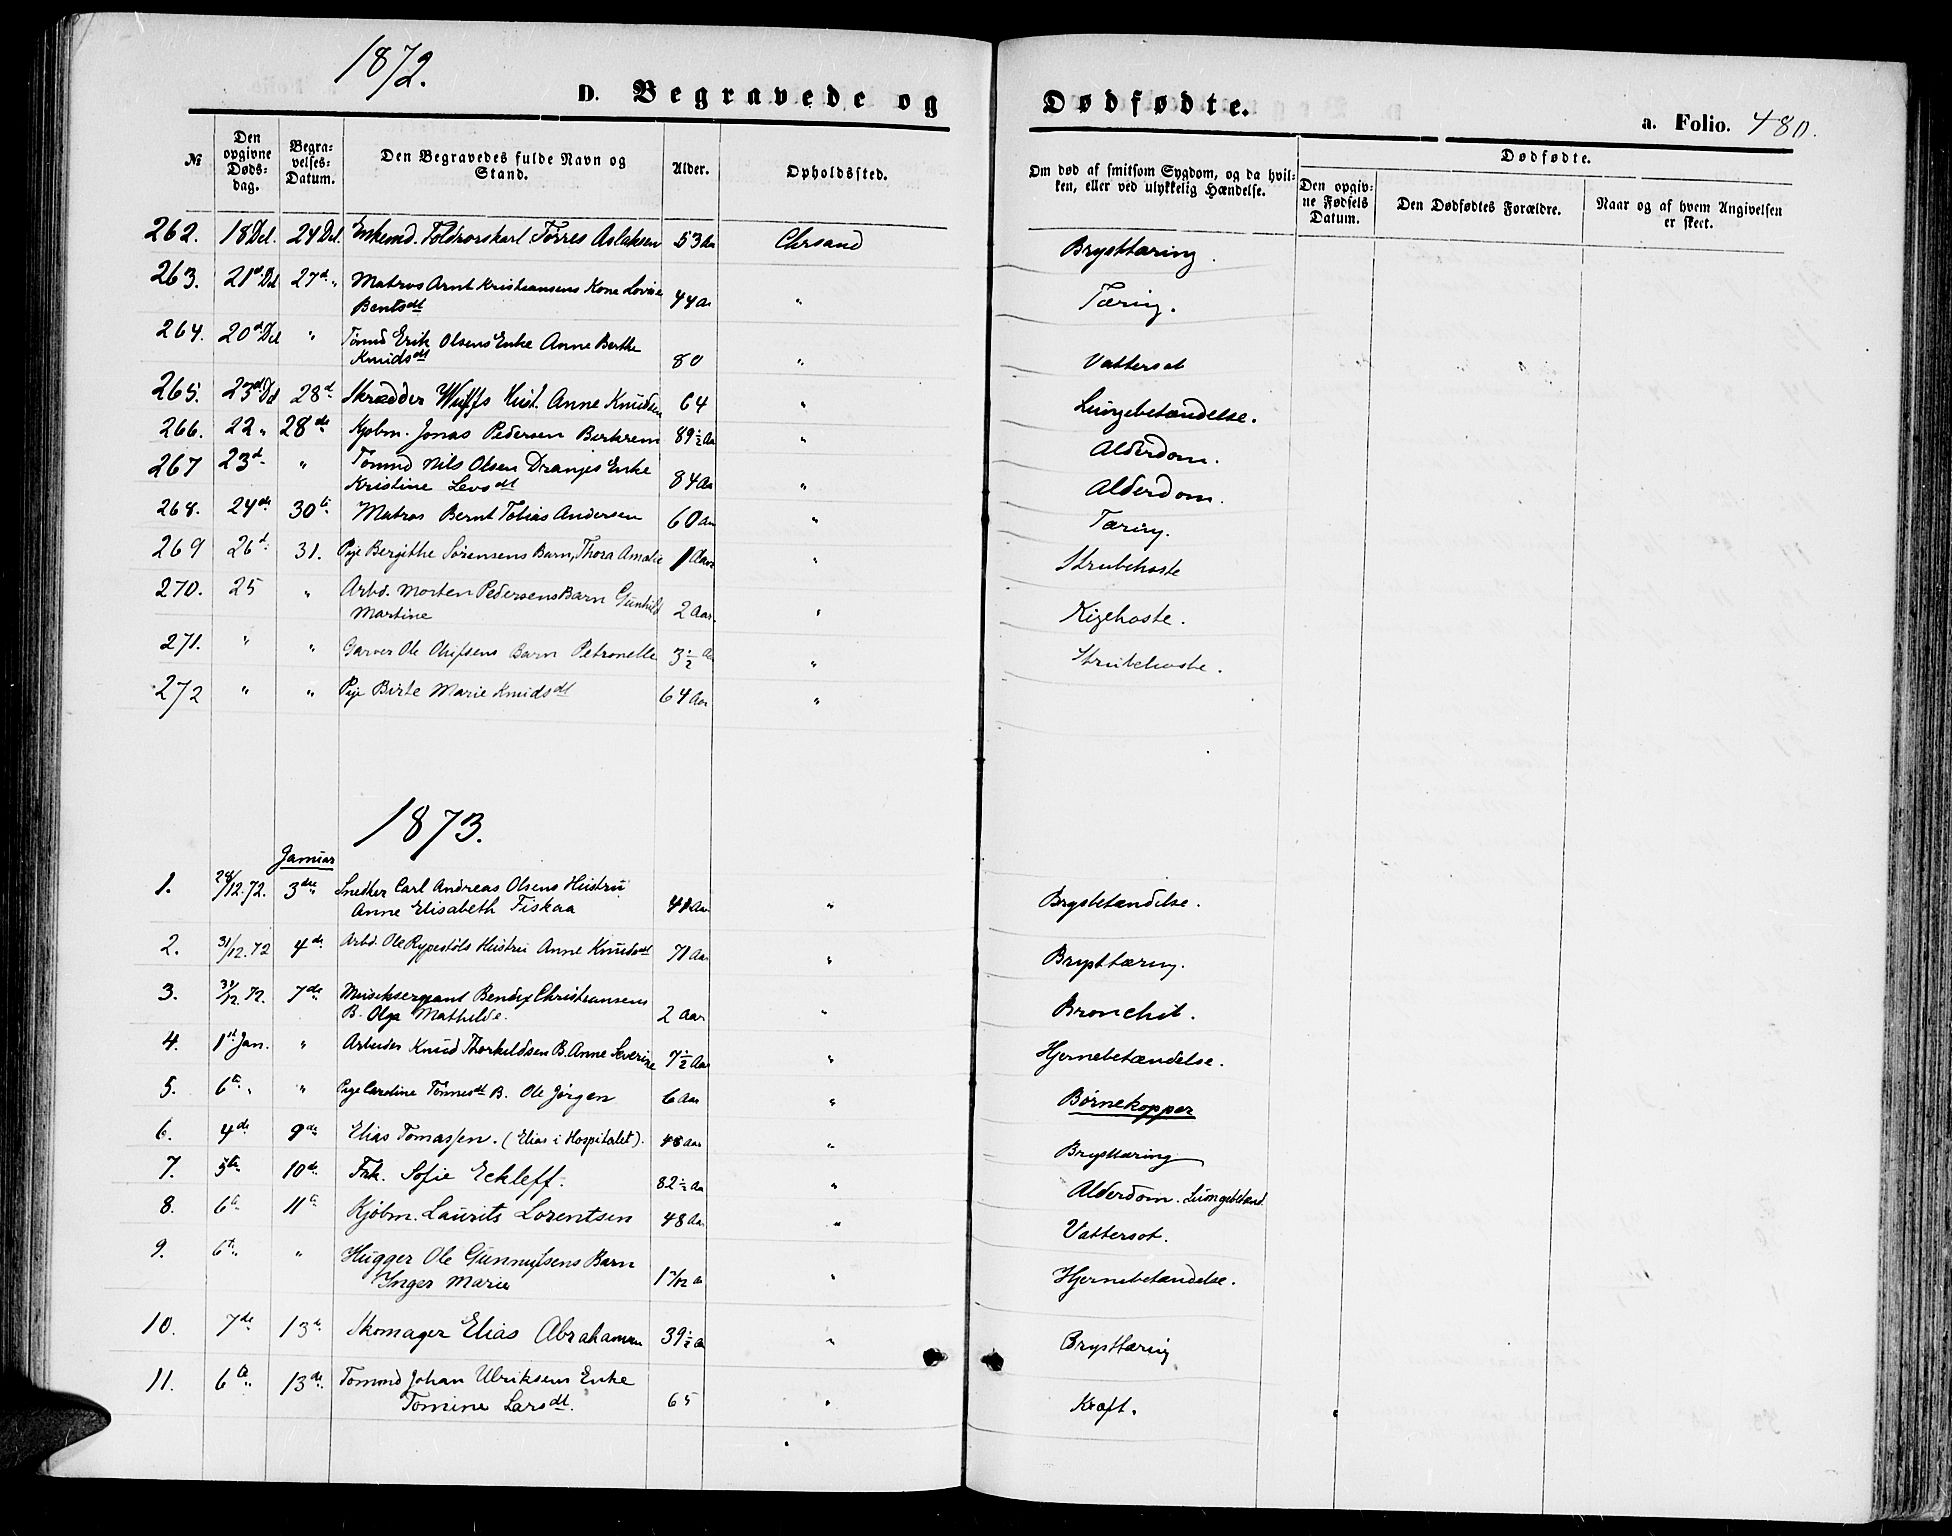 1872.
D. Begravede og Dødfødte.
a. Folio. 480.
№
Den opgivne Døds-dag.
Begra-velses-Datum.
Den Begravedes fulde Navn og Stand.
Alder.
Opholdssted.
Om død af smitsom Sygdom, og da hvil-ken, eller ved ulykkelig Hændelse.
Dødfødte.
Den opgiv-ne Fødsels Datum.
Den Dødfødtes Forældre.
Naar og af hvem Angivelsen er skeet.
262. 18 Del. 24 Del. Enkemd. Toldrorskarl Tørres Aslaksen 53 Aar Chrsand Brysttæring.
263. 21d. Del 27d. " Matros Arnt Kristiansens Kone Lovise
Bentsdt 44 Aar " Tæring.
264. 20d Del " Tømd Erik Olsens Enke Anne Berthe
Knudsdt 80 " Vattersot
265. 23d. Dd 28d. Skrædder Wulffs Hust. Anne Knudsen 64 " Lungebetændelse.
266. 22 " 28de Kjøbm. Jonas Pedersen Berkrem 89 1/2 Aar " Alderdom.
267 23d. " Tømmd Nils Olsen Dranjes Enke
Kristine Levsdt 84 Aar " Alderdom.
268. 24de 30te Matros Bernt Tobias Andersen 60 Aar " Tæring.
269 26d. 31. Pige Bergithe Sørensens Barn, Thora Amalie 1 Aar " Strubehoste
270. 25 " Arbd. Morten Pedersens Barn Gunhild
Martine 2 Aar. " Kighoste.
271. " " Garver Ole Olufsens Barn Petronelle 3 1/2 Aar " Strubehoste.
272 " " Pige Birte Marie Knudsdt 64 Aar "
1873.
Januar
1. 28/12.72. 3die Snedker Carl Andreas Olsens Hustru
Anne Elisabeth Fiskaa 41 Aar " Brystbetændelse.
2. 31/12.72 4de Arbd. Ole Rypestøls Hustru Anne Knudsdt 71 Aar " Brysttæring.
3. 31/12.72. 7de Musiksergeant Bendix Christiansens
B. Olga Mathilde. 2 Aar " Bronchit.
4. 1st Jan. " Arbeider Knud Thorkildsen B. Anne Severine 7 1/2 Aar " Hjernebetændelse.
5. 6te " " Pige Caroline Tønnesdt B. Ole Jørgen 6 Aar " Børnekopper
6. 4de 9de Elias Tomassen. (Elias i Hospitalet). 48 Aar " Brysttæring
7. 5te 10de Frk. Sofie Eckleff. 82 1/2 Aar " Alderdom. Lungebetænd.
8. 6te 11te Kjøbm. Laurits Lorentsen 48 Aar " Vattersot.
9. 6te " Hugger Ole Gunnufsens Barn
Inger Marie " Hjernebetændelse.
10. 7de 13de Skomager Elias Abrahamsen 39 1/2 Aar " Brysttæring
11. 6te 13de Tømmd Johan Ulriksens Enke
Tomine Larsdt. 65 " Kræft.